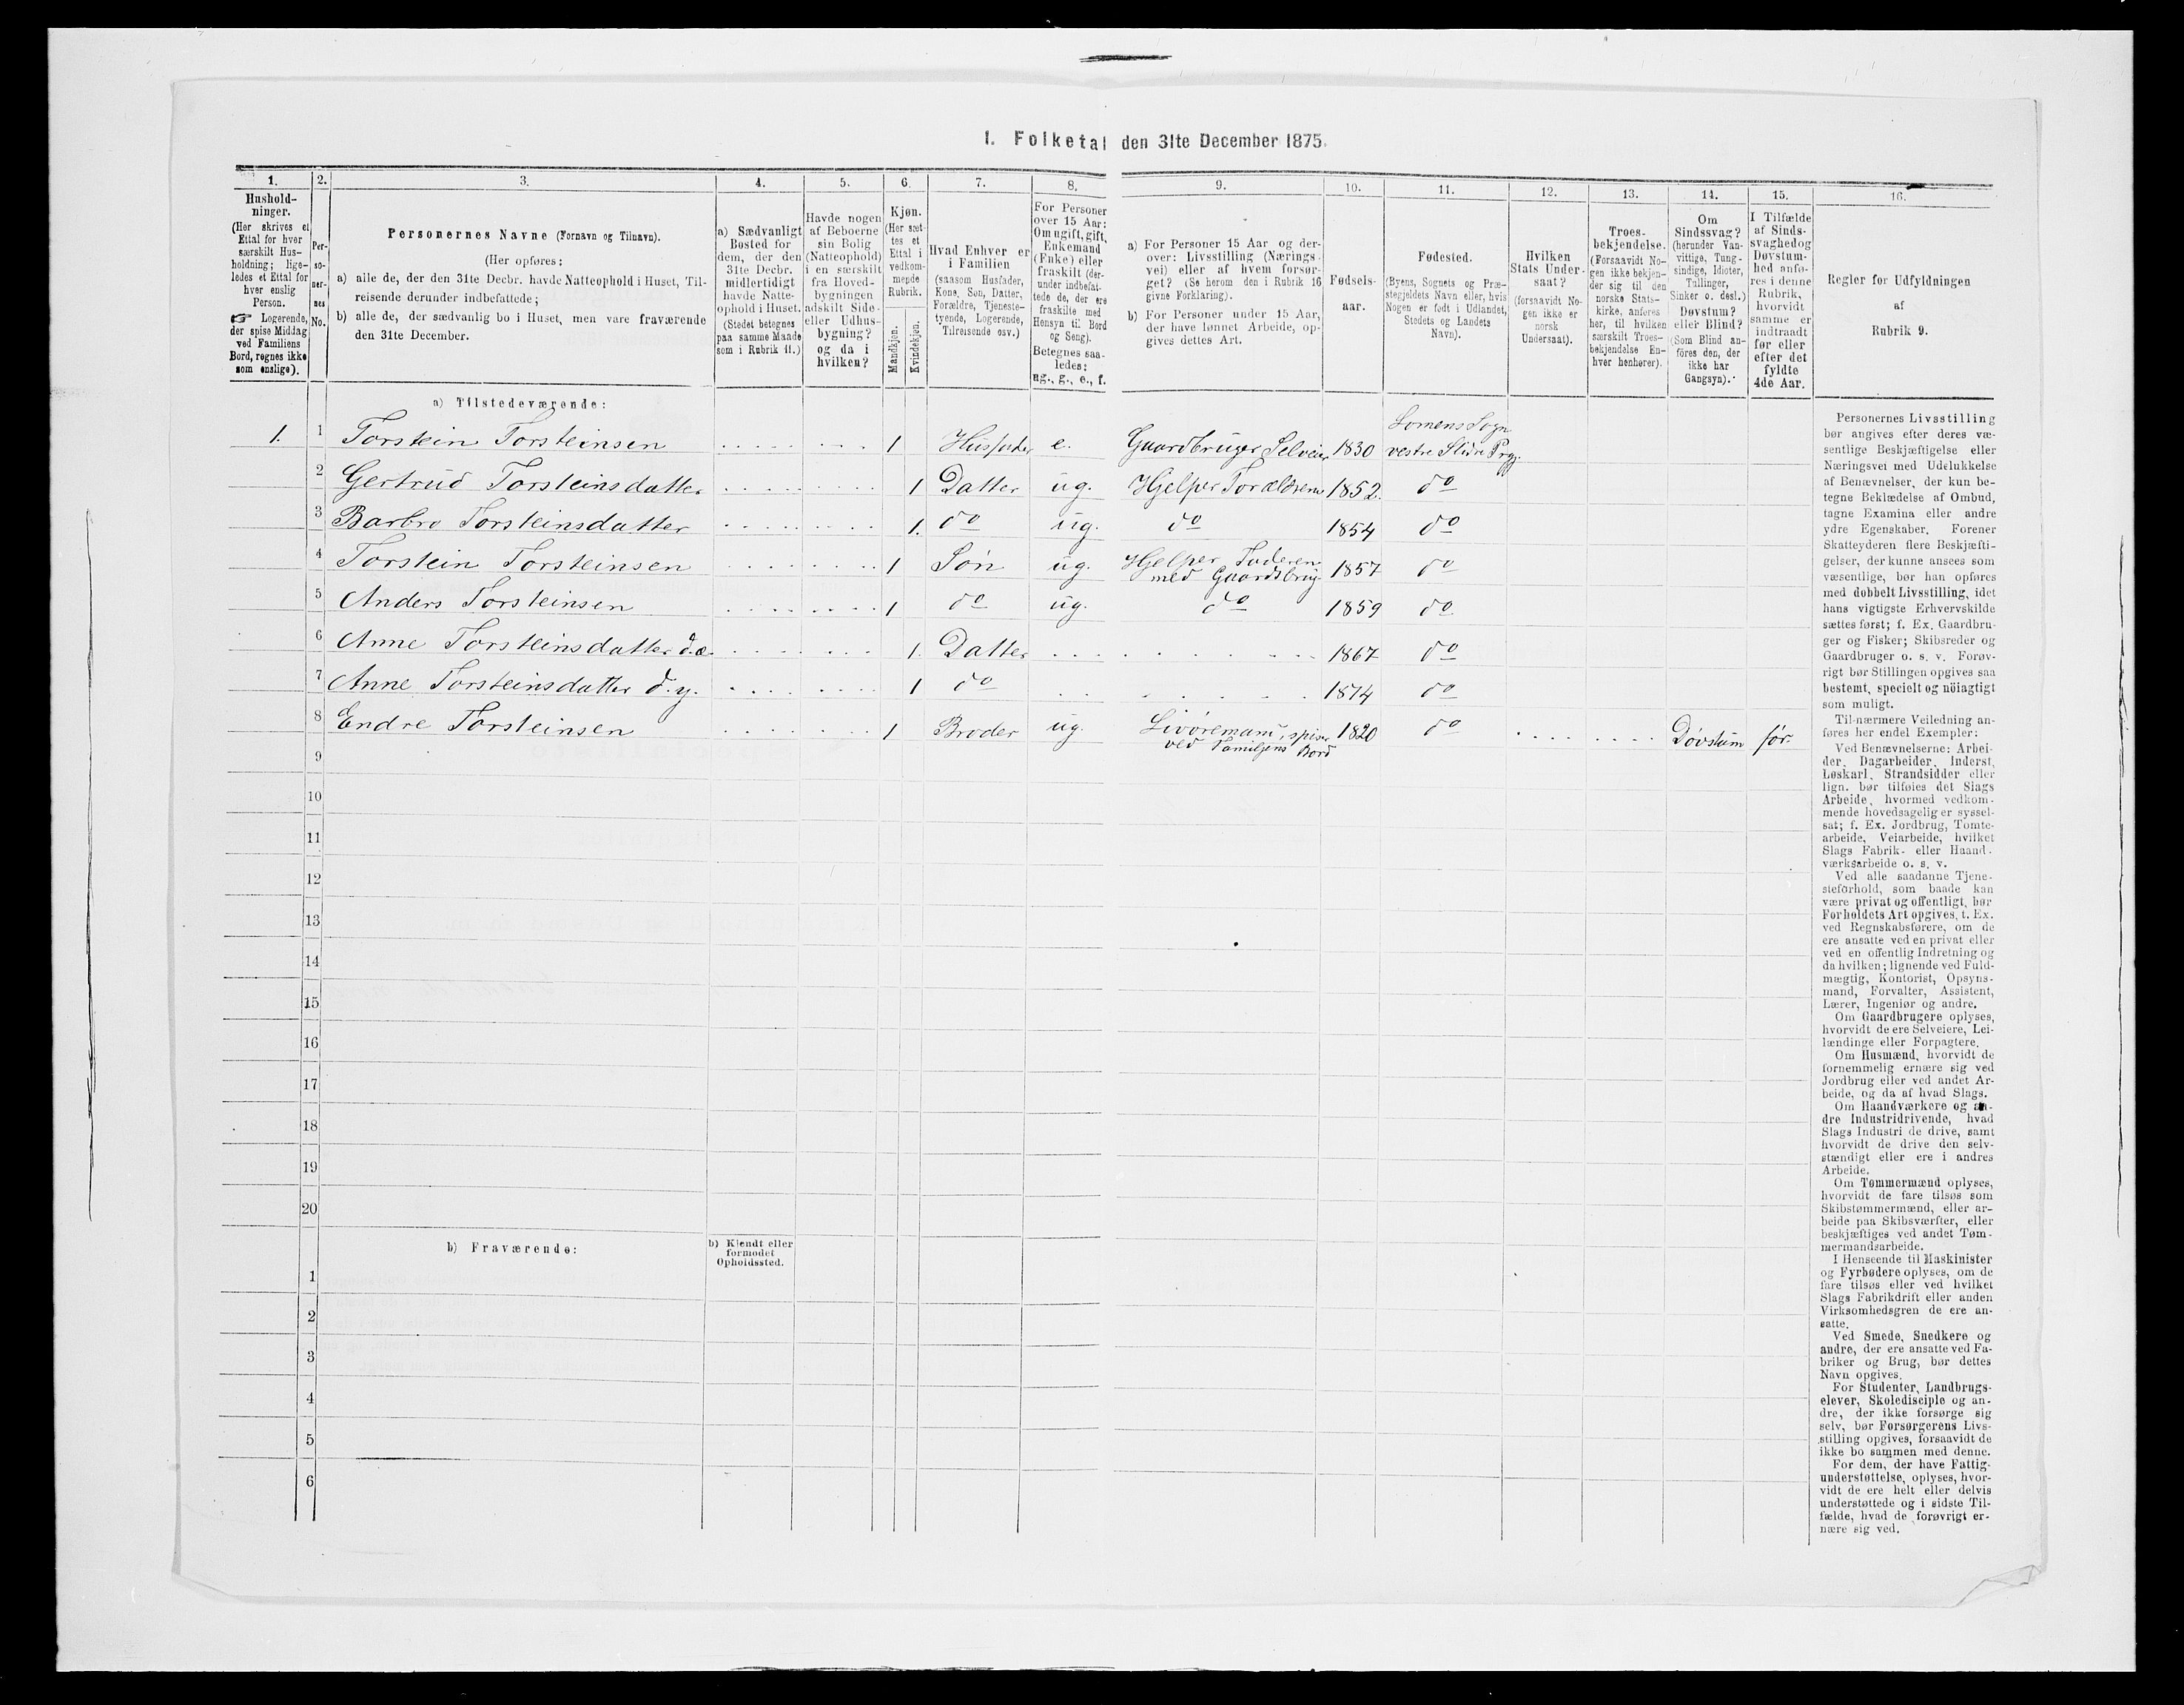 1. Folketal den 31te December 1875.
1. 2. 3. 4. 5. 6. 7. 8. 9. 10. 11. 12. 13. 14. 15. 16.
Hushold-
ninger.
(Her skrives et
Ettal for hver
særskilt Hus-
holdning; lige-
ledes et Ettal for
hver enslig
Person.
☞ Logerende,
der spise Middag
ved Familiens
Bord, regnes ikke
som enslige).
Per-
so-
ner-
nes
No.
Personernes Navne (Fornavn og Tilnavn).
(Her opføres:
a) alle de, der den 31te Decbr. havde Natteophold i Huset, Til-
reisende derunder indbefattede;
b) alle de, der sædvanlig bo i Huset, men vare fraværende
den 31te December.
a) Sædvanligt
Bosted for
dem, der den
31te Decbr.
midlertidigt
havde Natte-
ophold i Huset.
(Stedet betegnes
paa samme Maade
som i Rubrik 11.)
Havde nogen
af Beboerne
sin Bolig
(Natteophold)
i en særskilt
fra Hoved-
bygningen
adskilt Side-
eller Udhus-
bygning?
og da i
hvilken?
Kjøn.
(Her sæt-
tes et
Ettal i
vedkom-
mende
Rubrik.
Mandkjøn.
Kvindekjøn.
Hvad Enhver er
i Familien
(saasom Husfader,
Kone, Søn, Datter,
Forældre, Tjeneste-
tyende, Logerende,
Tilreisende osv.)
For Personer
over 15 Aar:
Om ugift, gift,
Enkemand
(Enke) eller
fraskilt (der-
under indbefat-
tede de, der ere
fraskilte med
Hensyn til Bord
og Seng).
Betegnes saa-
ledes:
ug., g., e., f.
a) For Personer 15 Aar og der-
over: Livsstilling (Nærings-
vei) eller af hvem forsør-
get? (Se herom den i Rubrik 16
givne Forklaring).
b) For Personer under 15 Aar,
der have lønnet Arbeide, op-
gives dettes Art.
Fødsels-
aar.
Fødested.
(Byens, Sognets og Præ-
stegjeldets Navn eller, hvis
Nogen er født i Udlandet,
Stedets og Landets
Navn).
Hvilken
Stats Under-
saat?
(forsaavidt No-
gen ikke er
norsk
Undersaat).
Troes-
bekjendelse.
(Forsaavidt No-
gen ikke bekjen-
der sig til den
norske Stats-
kirke, anføres
her, til hvilken
særskilt Troes-
bekjendelse En-
hver henhører).
Om
Sindssvag?
(herunder Van-
vittige, Tung-
sindige, Idioter,
Tullinger,
Sinker o. desl.)
Døvstum?
eller Blind?
(Som Blind an-
føres den, der
ikke har
Gangsyn).
I Tilfælde
af Sinds-
svaghed og
Døvstum-
hed anfø-
res i denne
Rubrik,
hvorvidt
samme er
indtraadt
før eller
efter det
fyldte
4de Aar.
Regler for Udfyldningen
af
Rubrik 9.
a) Tilstedeværende:
Lomens Sogn
1. 1 Torstein Torsteinsen 1 Husfader e. Gaardbruger Selveier 1830 vestre Slidre Prgj.
2 Gertrud Torsteinsdatter 1 Datter ug. Hjelper Forældrene 1852. do
3 Barbro Torsteinsdatter 1. do ug. do 1854 do
4 Torstein Torsteinsen 1 Søn ug. Hjelper Faderen
med Gaardsbrug 1857 do
5 Anders Torsteinsen 1 do ug. do 1859 do
6 Anne Torsteinsdatter d.æ. 1. Datter 1867 do
7 Anne Torsteinsdatter d.y. 1 do 1874 do
8 Endre Torsteinsen 1 Broder ug. Livøremann, spiser
ved Familjens Bord 1820 do Døvstum før.
9
10
11
12
13
14
15
16
17
18
19
20
b) Fraværende:
b) Kjendt eller
formodet
Opholdssted.
1
2
3
4
5
6
Personernes Livsstilling
bør angives efter deres væ-
sentlige Beskjæftigelse eller
Næringsvei med Udelukkelse
af Benævnelser, der kun be-
tegne Beklædelse af Ombud,
tagne Examina eller andre
ydre Egenskaber. Forener
Skatteyderen flere Beskjæfti-
gelser, der kunne ansees som
væsentlige, bør han opføres
med dobbelt Livsstilling, idet
hans vigtigste Erhvervskilde
sættes først; f. Ex. Gaardbru-
ger og Fisker; Skibsreder og
Gaardbruger o. s. v. Forøv-
rigt bør Stillingen opgives saa
bestemt, specielt og nöiagtigt
som muligt.
Til nærmere Veiledning an-
føres her endel Exempler:
Ved Benævnelserne: Arbei-
der, Dagarbeider, Inderst,
Løskarl, Strandsidder eller
lign. bør tilføies det Slags
Arbeide, hvormed vedkom-
mende hovedsagelig er syssel-
sat; f. Ex. Jordbrug, Tomte-
arbeide, Veiarbeide, hvilket
Slags Fabrik- eller Haand-
værksarbeide o. s. v.
Ved alle saadanne Tjene-
steforhold, som baade kan
være privat og offentligt, bør
Forholdets Art opgives, t. Ex.
ved Regnskabsførere, om de
ere ansatte ved en privat eller
ved en offentlig Indretning og
da hvilken; lignende ved Fuld-
mægtig, Kontorist, Opsyns-
mand, Forvalter, Assistent,
Lærer, Ingeniør og andre.
Om Gaardbrugere oplyses,
hvorvidt de ere Selveiere, Lei-
lændinge eller Forpagtere.
Om Husmænd, hvorvidt de
fornemmelig ernære sig ved
Jordbrug eller ved andet Ar-
beide, og da af hvad Slags.
Om Haandværkere og an-
dre Industridrivende, hvad
Slags Industri de drive, samt
hvorvidt de drive den selv-
stændigt eller ere i andres
Arbeide.
Om Tømmermænd oplyses,
hvorvidt de fare tilsøs som
Skibstømmermænd, eller ar-
beide paa Skibsværfter, eller
beskjæftiges ved andet Tøm-
mermandsarbeide.
I Henseende til Maskinister
og Fyrbødere oplyses, om de
fare tilsøs eller ved hvilket
Slags Fabrikdrift eller anden
Virksomhedsgren de ere an-
satte.
Ved Smede, Snedkere og
andre, der ere ansatte ved Fa-
briker og Brug, bør dettes
Navn opgives.
For Studenter, Landbrugs-
elever, Skoledisciple og an-
dre, der ikke forsørge sig
selv, bør Forsørgerens Livs-
stilling opgives, forsaavidt de
ikke bo sammen med denne.
For dem, der have Fattig-
understøttelse, oplyses, hvor-
vidt de ere helt eller delvis
understøttede og i sidste Til-
fælde, hvad de forøvrigt er-
nære sig ved.